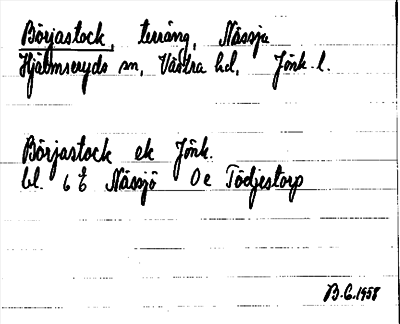 Börjastock, terräng, Nässja
Hjälmseryds sn, Västra hd, Jönk. l.
Börjastock ek Jönk.
bl. 6 E Nässjö 0e Tödjestorp
B.G. 1958